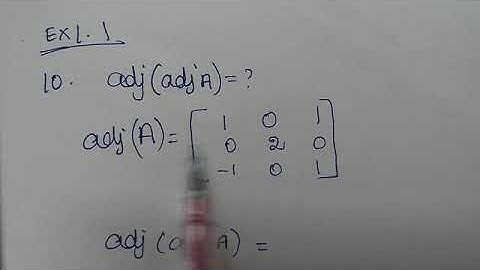 Ex 1.1
10. adj(adj A) = ?
adj(A) = [ 1 0 1
0 2 0
-1 0 1 ]
adj (a A) =